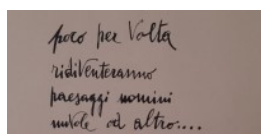 poco per Volta
ridiventeranno
paesaggi uomini
nuvole od altro....